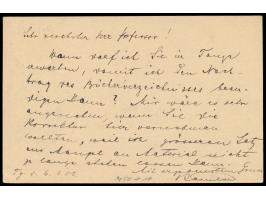 Sehr verehrter Herr Professor!
Wann darf ich Sie in Tongr
erwarten, damit ich den Nach-
trag des Bücherverzeichnisses been-
digen kann? Mir wäre es sehr
angenehm, wenn Sie die
Korrektur hier vornehmen
wollten, weil ich grösseren Satz
aus Mangel an Material nicht
so lange stehen lassen kann.
Mit ergebenstem Gruss